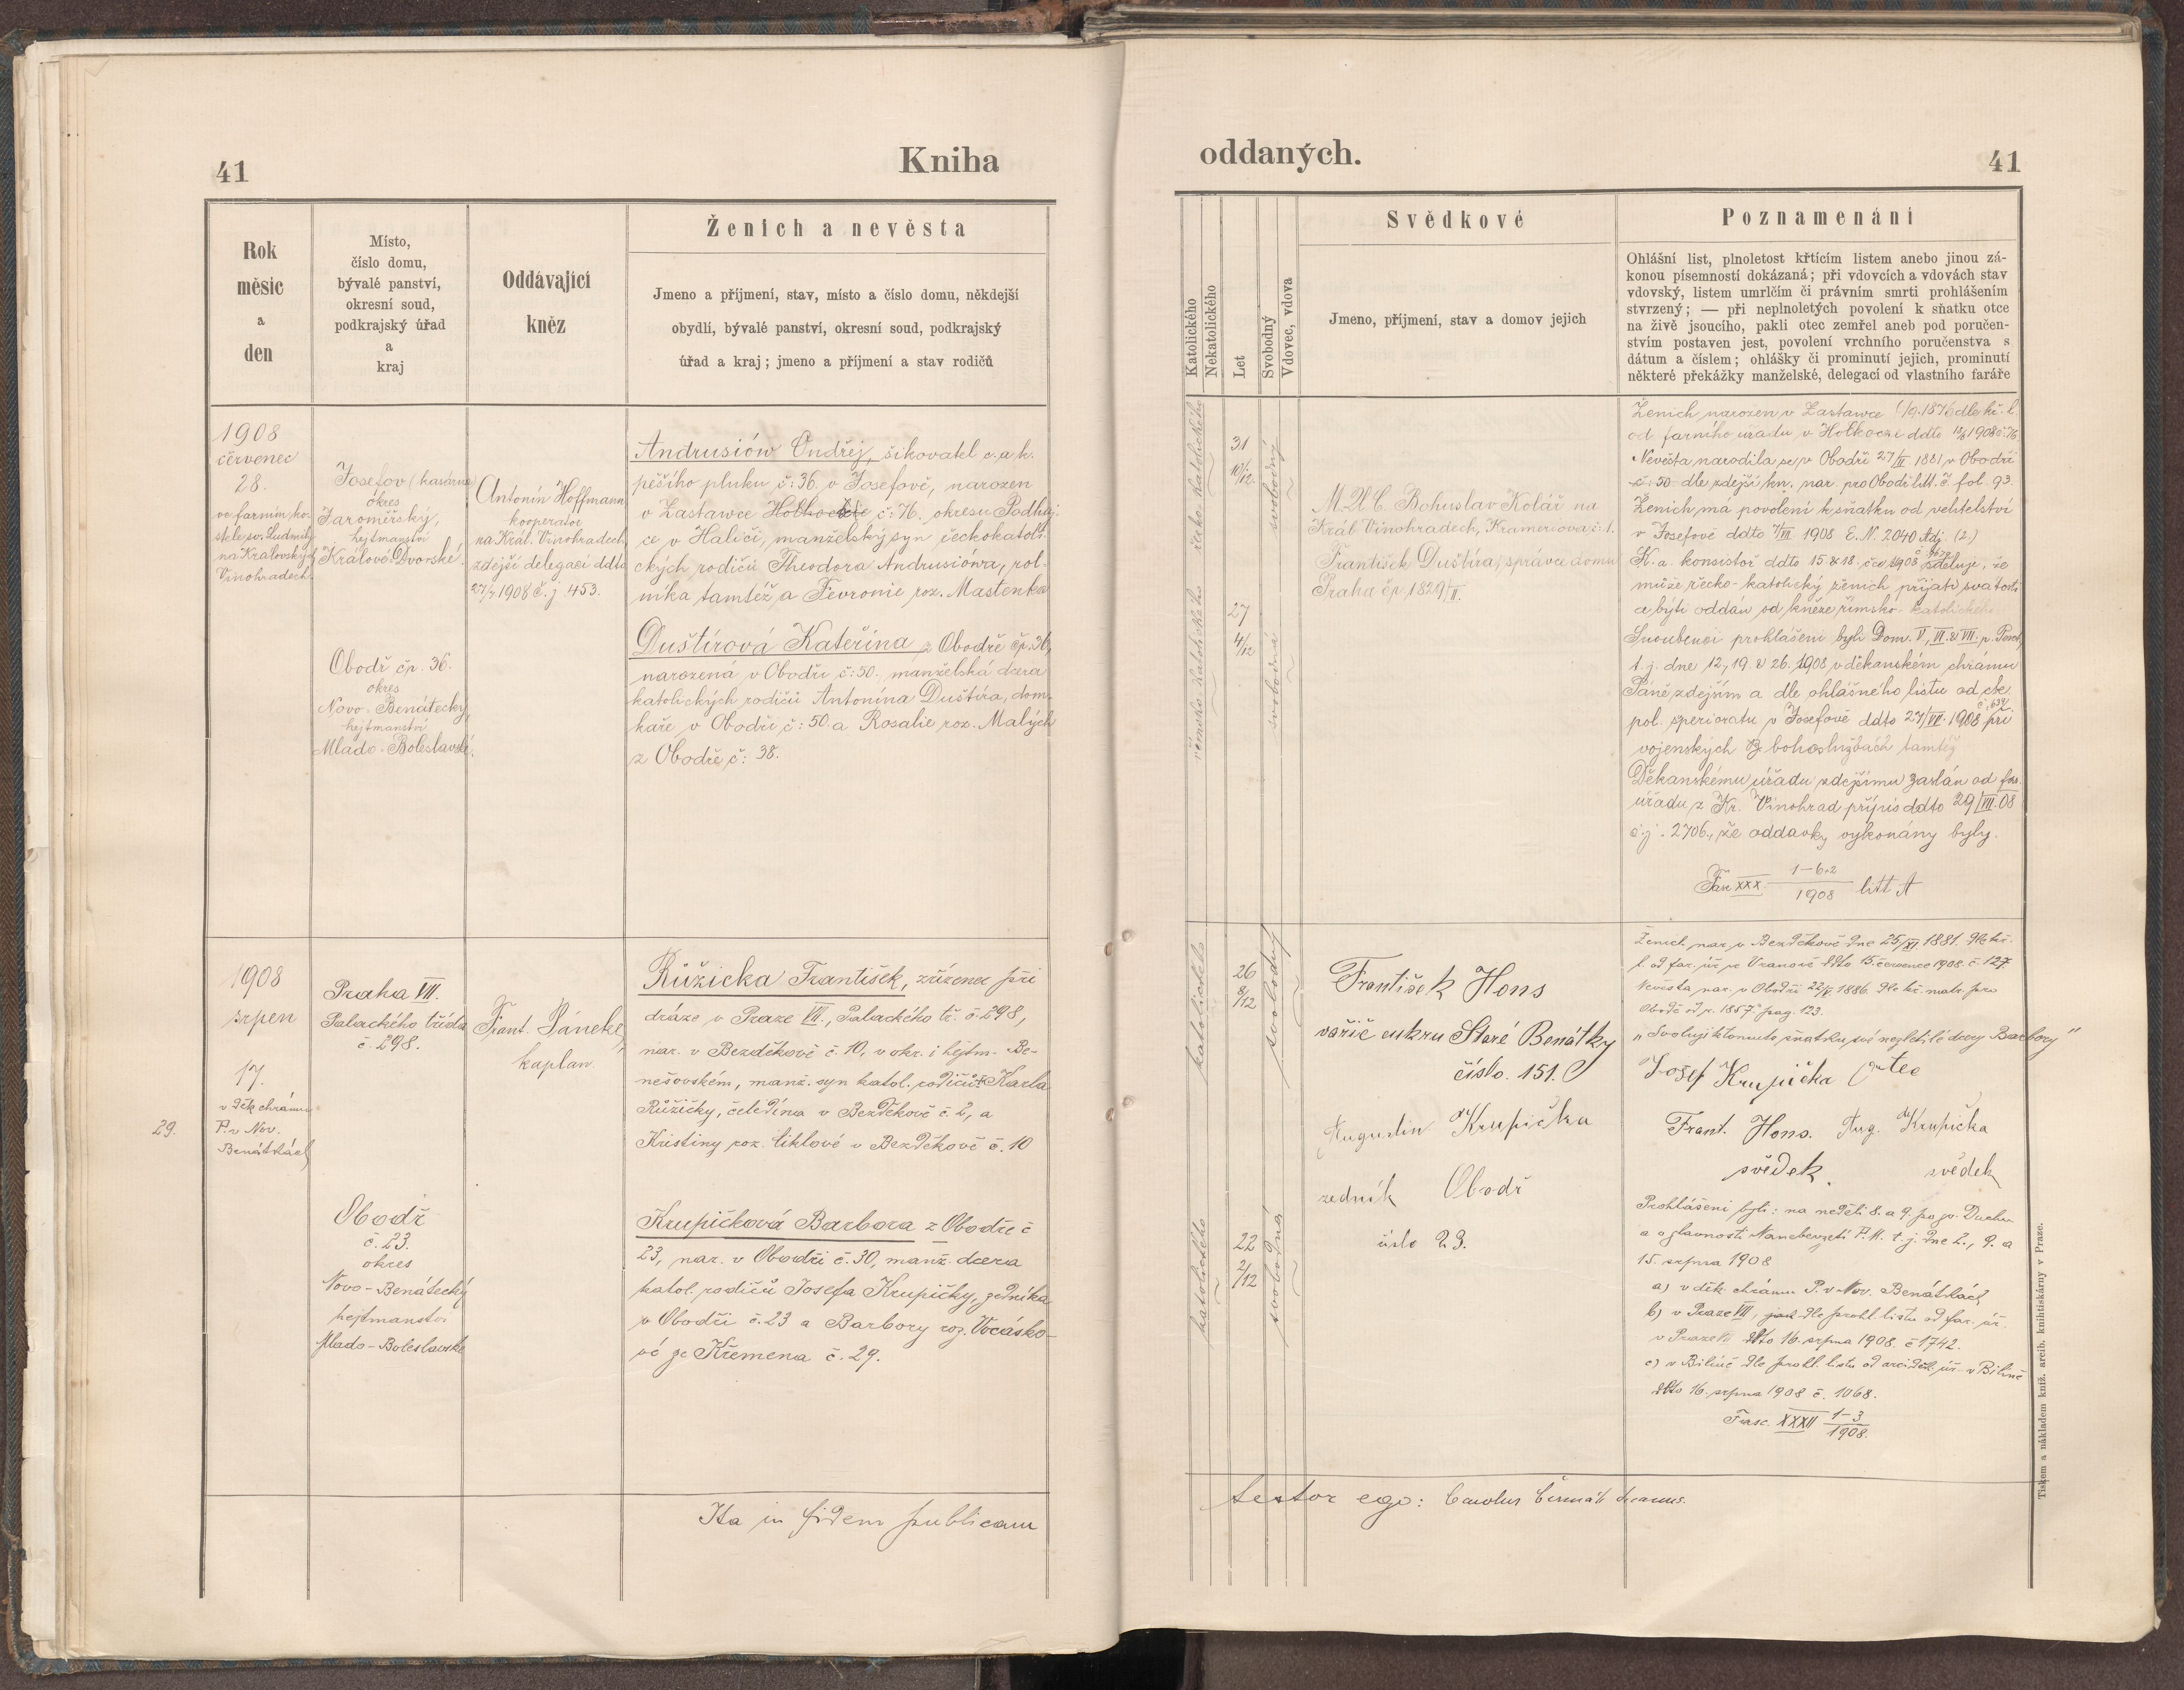 41
Kniha
Rok
měsíc
a
den
Místo,
číslo domu,
bývalé panství,
okresní soud,
podkrajský úřad
a
kraj
Oddávající
kněz
Ženich a nevěsta
Jmeno a příjmení, stav, místo a číslo domu, někdejší
obydlí, bývalé panství, okresní soud, podkrajský
úřad a kraj; jmeno a příjmení a stav rodičů
1908
červenec
28.
ve farním ko-
stele sv. Ludmily
na Královských
Vinohradech.
Josefov (kasárna)
okres
Jaroměřský,
hejtmanství
Králové-Dvorské.
Antonín Hoffmann
kooperátor
na Král. Vinohradech,
zdejší delegací ddto
27/7 1908 č. j. 453.
Andrusiów Ondřej, šikovatel c. a k.
pěšího pluku č: 36. v Josefově, narozen
v Zastawce č: 76. okresu Podhaj-
ce v Haliči, manželský syn řeckokatoli-
ckých rodičů Theodora Andrusiówa, rol-
níka tamtéž a Fevronie roz. Mastenka
Obodř čp. 36.
okres
Novo-Benátecký
hejtmanství
Mlado-Boleslavské.
Duštírová Kateřina z Obodře čp. 36,
narozená v Obodři č: 50., manželská dcera
katolických rodičů Antonína Duštíra, dom-
kaře v Obodři č: 50. a Rosalie roz. Malých
z Obodře č: 38.
1908
srpen
17.
v děk. chrámu
P. v Nov.
Benátkách
29.
Praha VII.
Palackého třída
č. 298.
Frant. Pánek,
kaplan
Růžicka František, zřízenec při
dráze v Praze VII., Palackého tř. č. 298,
nar. v Bezděkově č. 10, v okr. i hejtm. Be-
nešovském, manž. syn katol. rodičů Karla
Růžičky, čeledína v Bezděkově č. 2, a
Kristiny roz. v Bezděkově č. 10
Obodř
č. 23.
okres
Novo-Benátecký
hejtmanství
Mlado-Boleslavské
Krupičková Barbora z Obodře č
23, nar. v Obodři č. 30, manž. dcera
katol. rodičů Josefa Krupičky, zedníka
v Obodři č. 23 a Barbory roz. Vocásko-
vé ze Křemena č. 29.
Ita in fidem publicam
oddaných.
41
Katolického
Nekatolického
Let
Svobodný
Vdovec, vdova
Svědkové
Jmeno, příjmení, stav a domov jejich
Poznamenání
Ohlášní list, plnoletost křtícím listem anebo jinou zá-
konou písemností dokázaná; při vdovcích a vdovách stav
vdovský, listem umrlčím či právním smrti prohlášením
stvrzený; — při neplnoletých povolení k sňatku otce
na živě jsoucího, pakli otec zemřel aneb pod poručen-
stvím postaven jest, povolení vrchního poručenstva s
dátum a číslem; ohlášky či prominutí jejich, prominutí
některé překážky manželské, delegací od vlastního faráře
řecko-katolického
31
10/12.
svobodný
římsko-katolického
27
4/12
svobodná
M.U.C. Bohuslav Kolář na
Král. Vinohradech, Krameriova č: 1.
František Duštíra, správce domu
Praha čp. 1829/II.
Ženich narozen v Zastawce 1876 dle kř. l.
od farního úřadu v ddto 1908
Nevěsta narodila se v Obodři 1881 v Obodři
č: 50 dle zdejší kn. nar. pro Obodř fol. 93.
Ženich má povolení k sňatku od velitelství
v Josefově ddto 1908 E. N. 2040 Adj. (2.)
K. a. konsistoř ddto 15 & 18. 1908 sděluje, že
může řecko-katolický ženich přijati svátosti
a býti oddán od kněze římsko-katolického
Snoubenci prohlášeni byli Dom. V, VI. & VII. p. Pent.
t. j. dne 12, 19. & 26. 1908 v děkanském chrámu
Páně zdejším a dle ohlášného listu od
pol. v Josefově ddto 27/VII. 1908 při
vojenských bohoslužbách tamtéž
Děkanskému úřadu zdejšímu zaslán od far.
úřadu z Kr. Vinohrad přípis ddto 29/VII. 08
č. j. 2706, že oddavky vykonány byly.
Fas XXX 1-6.2/1908 litt A
katolického
26
8/12
svobodný
katolického
22
2/12
svobodná
František Hons
vařič cukru Staré Benátky
číslo. 151.
Augustin Krupička
zedník Obodř
číslo 23.
Ženich nar. v Bezděkově dne 25/XI 1881. dle kř.
l. od far. úř. ve Vranově ddto 15. července 1908. č. 127.
Nevěsta nar. v Obodři 22/V. 1886. dle kř. matr. pro
Obodř od r. 1857. pag. 123.
„Svoluji k tomuto sňatku své nezletilé dcery Barbory“
Josef Krupička Otec
Frant. Hons. Aug. Krupička
svědek. svědek
Prohlášeni byli: na neděli 8. a 9. po sv. Duchu
a o slavnosti Nanebevzetí P. M. t. j. dne 2., 9. a
15. srpna 1908
a) v děk. chrámu P. v Nov. Benátkách
b) v Praze VII, dle prohl. listu od far. úř.
v Praze VII ddto 16. srpna 1908. č 1742.
c) v Bílině dle prohl. listu od arciděk. úř. v Bílině
ddto 16. srpna 1908 č. 1068.
Fasc. XXXII 1-3/1908.
testor ego: Carolus Čermák decanus.
Tiskem a nákladem kníž. arcib. knihtiskárny v Praze.